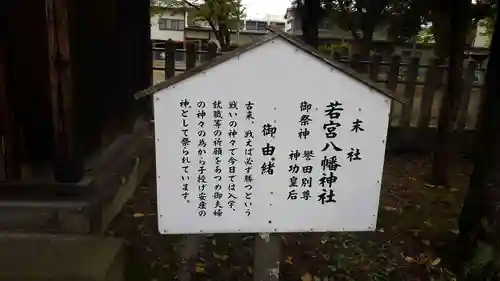 末社
若宮八幡神社
御祭神 誉田別尊
神功皇后
御由緒
古来、戦えば必ず勝つという
戦いの神々で今日では入学、
就職等の祈願をあつめ御夫婦
の神々の為から子授け安産の
神として祭られています。